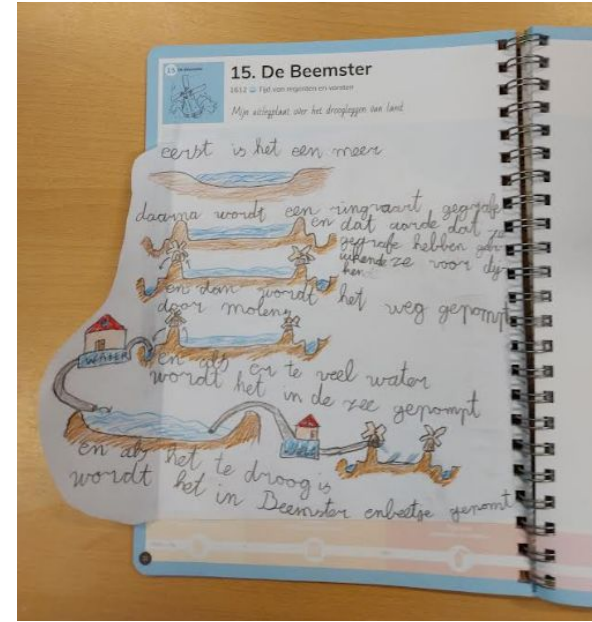 15 De Beemster
15. De Beemster
1612 Tijd van regenten en vorsten
Mijn uitlegplaat over het droogleggen van land
eerst is het een meer
daarna wordt een ringvaart gegrafe
en dat aarde dat ze
gegrafe hebben geb-
ruikende ze voor dij-
ken
en dan wordt het weg gepompt
door molens
en als er te veel water
wordt het in de zee gepompt
en als het te droog is
wordt het in Beemster enbeetje gepomt